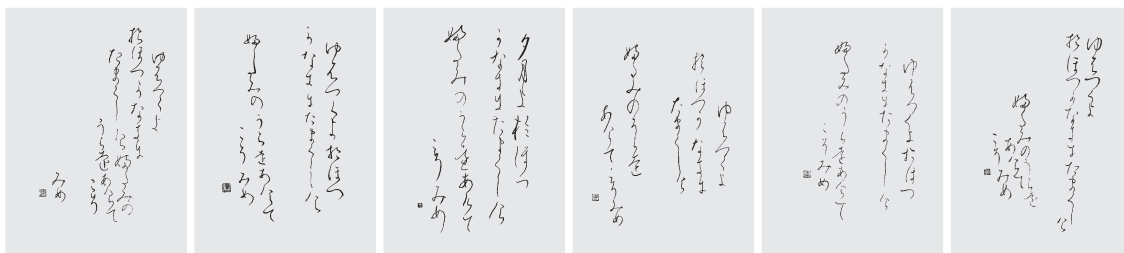 ゆふつくよ
おほつかなきを
たまくしけふたみの
うらはあけて
こそ
みめ
ゆふつくよおほつ
かなきをたまくしけ
ふたみのうらはあけて
こそみめ
夕月よおほつ
かなきをたまくしけ
ふたみのうらはあけて
こそみめ
ゆふつくよ
おほつかなきを
たまくしけ
ふたみのうらは
あけてこそみめ
ゆふつくよおほつ
かなきをたまくしけ
ふたみのうらはあけて
こそみめ
ゆふつくよ
おほつかなきをたまくしけ
ふたみのうらは
あけて
こそみめ